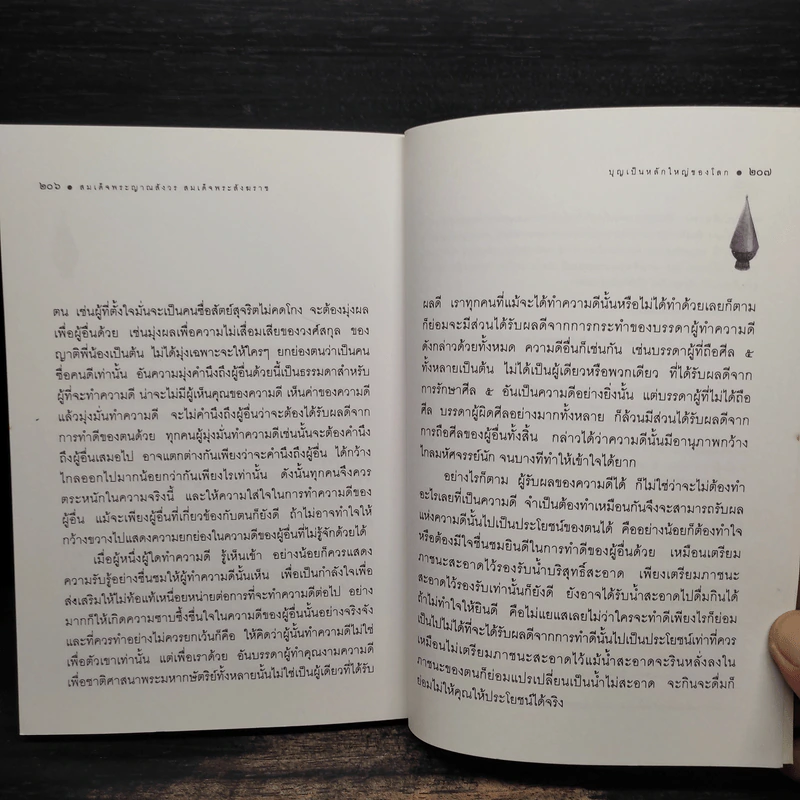 ๒๐๖ ● สมเด็จพระญาณสังวร สมเด็จพระสังฆราช
ตน เช่นผู้ที่ตั้งใจมั่นจะเป็นคนซื่อสัตย์สุจริตไม่คดโกง จะต้องมุ่งผล
เพื่อผู้อื่นด้วย เช่นมุ่งผลเพื่อความไม่เสื่อมเสียของวงศ์สกุล ของ
ญาติพี่น้องเป็นต้น ไม่ได้มุ่งเฉพาะจะให้ใครๆ ยกย่องตนว่าเป็นคน
ซื่อคนดีเท่านั้น อันความมุ่งคำนึงถึงผู้อื่นด้วยนี้เป็นธรรมดาสำหรับ
ผู้ที่จะทำความดี น่าจะไม่มีผู้เห็นคุณของความดี เห็นค่าของความดี
แล้วมุ่งมั่นทำความดี จะไม่คำนึงถึงผู้อื่นว่าจะต้องได้รับผลดีจาก
การทำดีของตนด้วย ทุกคนผู้มุ่งมั่นทำความดีเช่นนั้นจะต้องคำนึง
ถึงผู้อื่นเสมอไป อาจแตกต่างกันเพียงว่าจะคำนึงถึงผู้อื่น ได้กว้าง
ไกลออกไปมากน้อยกว่ากันเพียงไรเท่านั้น ดังนั้นทุกคนจึงควร
ตระหนักในความจริงนี้ และให้ความใส่ใจในการทำความดีของ
ผู้อื่น แม้จะเพียงผู้อื่นที่เกี่ยวข้องกับตนก็ยังดี ถ้าไม่อาจทำใจให้
กว้างขวางไปแสดงความยกย่องในความดีของผู้อื่นที่ไม่รู้จักด้วยได้
เมื่อผู้หนึ่งผู้ใดทำความดี รู้เห็นเข้า อย่างน้อยก็ควรแสดง
ความรับรู้อย่างชื่นชมให้ผู้ทำความดีนั้นเห็น เพื่อเป็นกำลังใจเพื่อ
ส่งเสริมให้ไม่ท้อแท้เหนื่อยหน่ายต่อการที่จะทำความดีต่อไป อย่าง
มากก็ให้เกิดความซาบซึ้งชื่นใจในความดีของผู้อื่นนั้นอย่างจริงจัง
และที่ควรทำอย่างไม่ควรยกเว้นก็คือ ให้คิดว่าผู้นั้นทำความดีไม่ใช่
เพื่อตัวเขาเท่านั้น แต่เพื่อเราด้วย อันบรรดาผู้ทำคุณงามความดี
เพื่อชาติศาสนาพระมหากษัตริย์ทั้งหลายนั้นไม่ใช่เป็นผู้เดียวที่ได้รับ
บุญเป็นหลักใหญ่ของโลก ● ๒๐๗
ผลดี เราทุกคนที่แม้จะได้ทำความดีนั้นหรือไม่ได้ทำด้วยเลยก็ตาม
ก็ย่อมจะมีส่วนได้รับผลดีจากการกระทำของบรรดาผู้ทำความดี
ดังกล่าวด้วยทั้งหมด ความดีอื่นก็เช่นกัน เช่นบรรดาผู้ที่ถือศีล ๕
ทั้งหลายเป็นต้น ไม่ได้เป็นผู้เดียวหรือพวกเดียว ที่ได้รับผลดีจาก
การรักษาศีล ๕ อันเป็นความดีอย่างยิ่งนั้น แต่บรรดาผู้ที่ไม่ได้ถือ
ศีล บรรดาผู้ผิดศีลอย่างมากทั้งหลาย ก็ล้วนมีส่วนได้รับผลดีจาก
การถือศีลของผู้อื่นทั้งสิ้น กล่าวได้ว่าความดีนั้นมีอานุภาพกว้าง
ไกลมหัศจรรย์นัก จนบางทีทำให้เข้าใจได้ยาก
อย่างไรก็ตาม ผู้รับผลของความดีได้ ก็ไม่ใช่ว่าจะไม่ต้องทำ
อะไรเลยที่เป็นความดี จำเป็นต้องทำเหมือนกันจึงจะสามารถรับผล
แห่งความดีนั้นไปเป็นประโยชน์ของตนได้ คืออย่างน้อยก็ต้องทำใจ
หรือต้องมีใจชื่นชมยินดีในการทำดีของผู้อื่นด้วย เหมือนเตรียม
ภาชนะสะอาดไว้รองรับน้ำบริสุทธิ์สะอาด เพียงเตรียมภาชนะ
สะอาดไว้รองรับเท่านั้นก็ยังดี ยังอาจได้น้ำสะอาดไปดื่มกินได้
ถ้าไม่ทำใจให้ยินดี คือไม่แยแสเลยไม่ว่าใครจะทำดีเพียงไรก็ย่อม
เป็นไปไม่ได้ที่จะได้รับผลดีจากการทำดีนั้นไปเป็นประโยชน์เท่าที่ควร
เหมือนไม่เตรียมภาชนะสะอาดไว้แม้น้ำสะอาดจะรินหลั่งลงใน
ภาชนะของตนก็ย่อมแปรเปลี่ยนเป็นน้ำไม่สะอาด จะกินจะดื่มก็
ย่อมไม่ให้คุณให้ประโยชน์ได้จริง